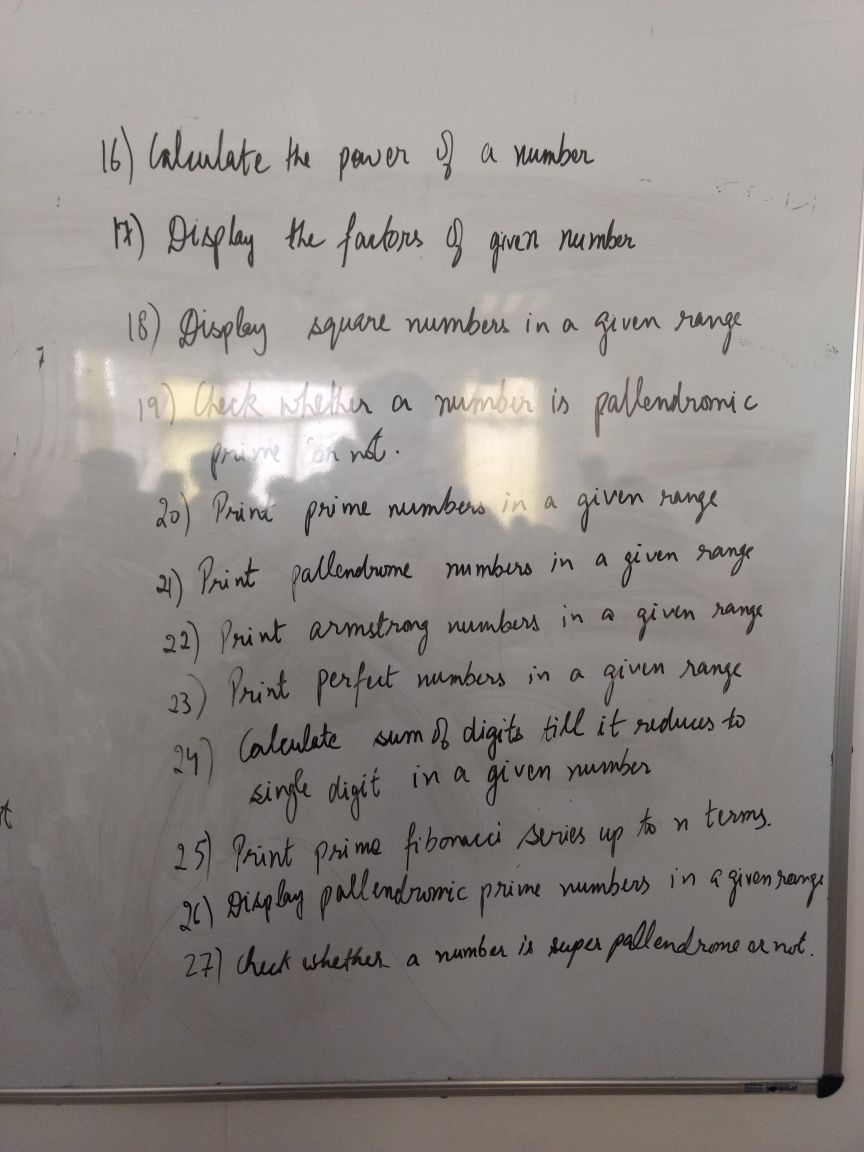 16) Calculate the power of a number
17) Display the factors of given number
18) Display square numbers in a given range
7
19) Check whether a number is pallendromic
prime or not.
20) Print prime numbers in a given range
21) Print pallendrome numbers in a given range
22) Print armstrong numbers in a given range
23) Print perfect numbers in a given range
24) Calculate sum of digits till it reduces to
single digit in a given number
25) Print prime fibonacci series up to n terms.
26) Display pallendromic prime numbers in a given range
27) Check whether a number is super pallendrome or not.